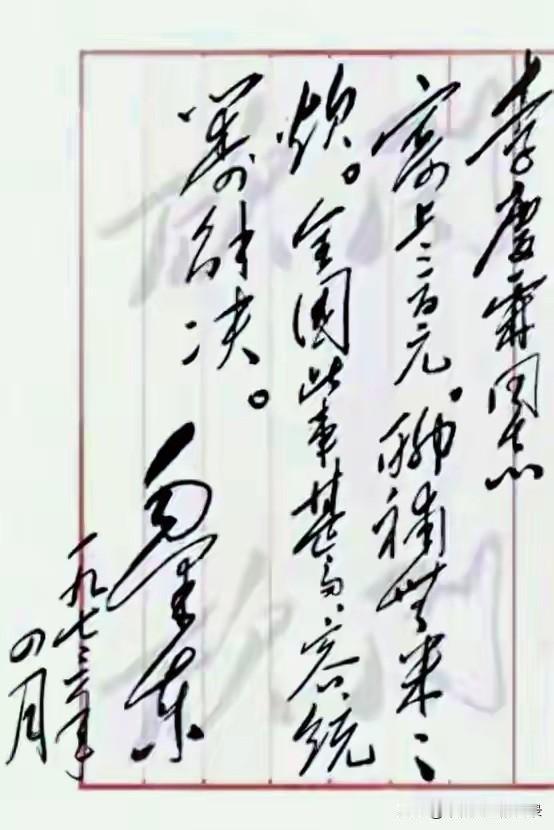 李慶霖同志
寄上三百元。聊補無米之
炊。全国此事甚多、容统
筹解决。
毛泽东
一九七三年
四月